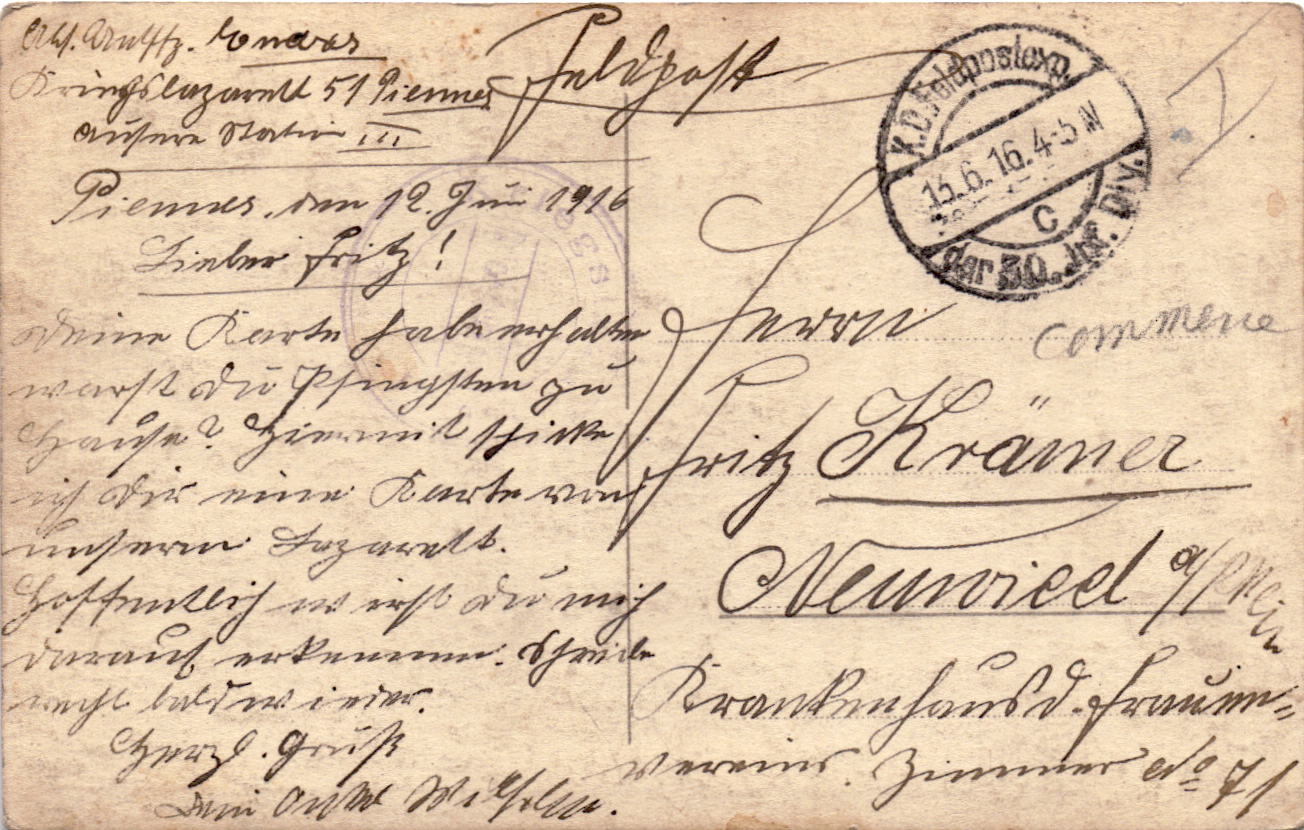 Kriegslazarett 51 Piennes
äusere Station III
Feldpost
K.D. Feldpostexp.
13.6.16. 4-5 N
c
der 30. Inf. Div.
Piennes, den 12. Juni 1916
Lieber Fritz!
Deine Karte habe erhalten
warst du Pfingsten zu
Hause? Hiermit schicke
ich dir eine Karte von
unserm Lazarett.
Hoffentlich wirst du mich
darauf erkennen. Schreibe
recht bald wieder.
Herzl. Gruß
Dein Onkel Wilhelm.
Herrn
Fritz Krämer
Neuwied a/Rhein
Krankenhaus d. Frauen-
vereins. Zimmer No 71